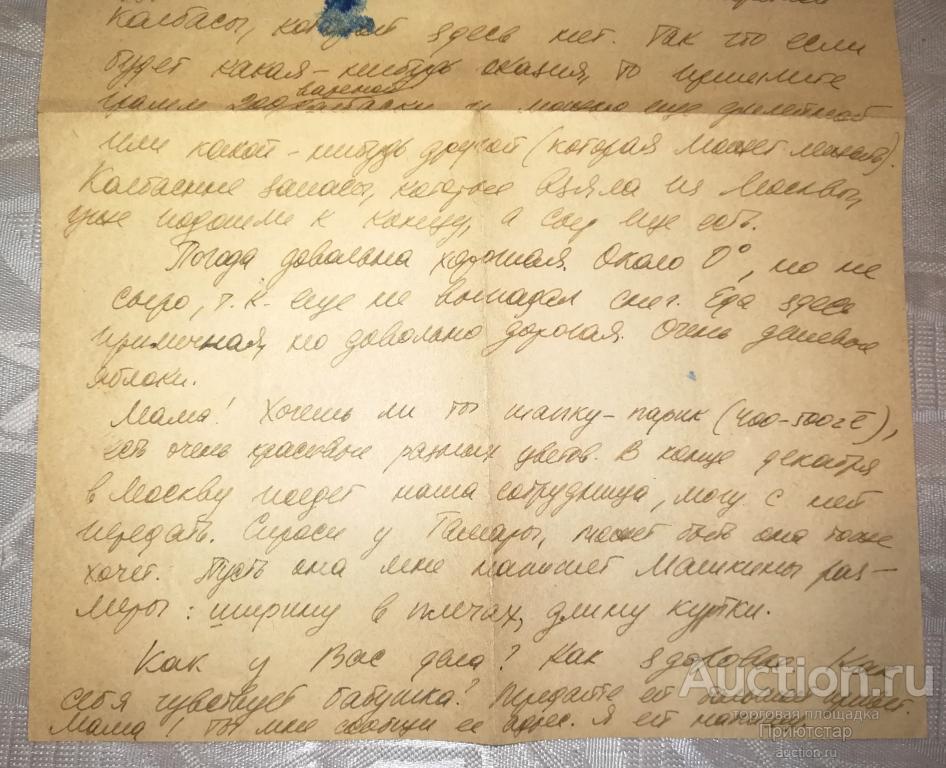 колбасы, которой здесь нет. Так что если
будет какая-нибудь оказия, то пришлите
грамм 200 вареной колбаски и можно еще
или какой-нибудь другой (которая может лежать).
Колбасные запасы, которые взяла из Москвы,
уже подошли к концу, а сыр еще есть.
Погода довольно хорошая. Около 0°, но не
сыро, т.к. еще не выпадал снег. Еда здесь
приличная, но довольно дорогая. Очень дешевые
яблоки.
Мама! Хочешь ли ты шапку-парик (400-500
есть очень красивые разных цветов. В конце декабря
в Москву поедет наша сотрудница, могу с ней
передать. Спроси у Тамары, может быть она тоже
хочет. Пусть она мне напишет Машкины раз-
меры: ширину в плечах, длину куртки.
Как у Вас дела? Как здоровье? Как
себя чувствует бабушка? Передайте ей большой привет.
Мама! Ты мне сообщи ее адрес. Я ей напишу.
Auction.ru
торговая площадка
Приютстар
auction.ru